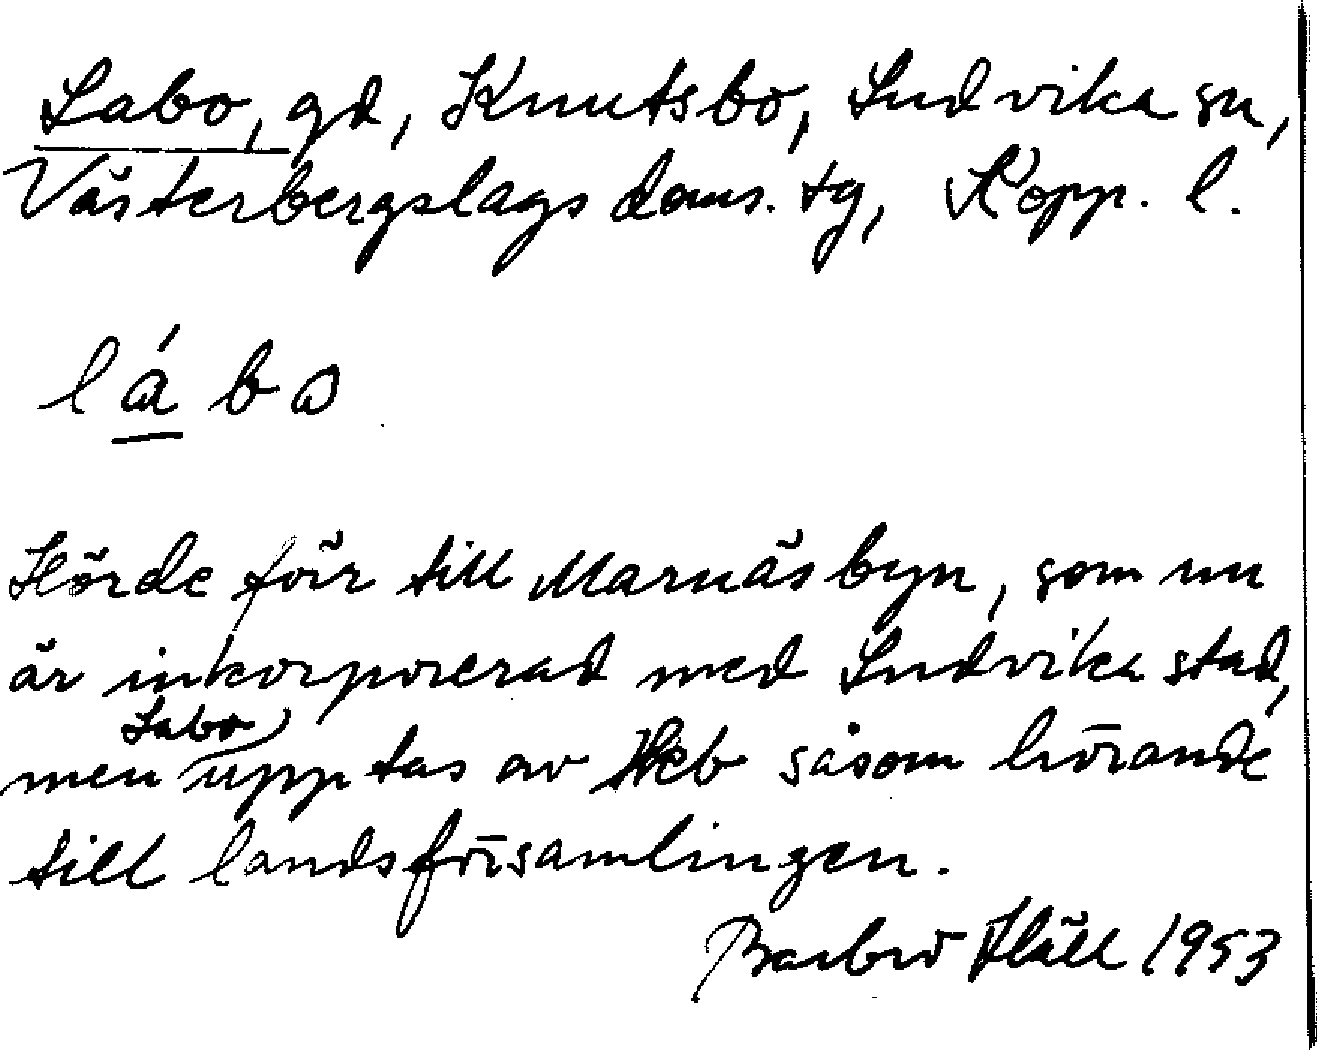 Labo, gd, Knutsbo, Ludvika sn,
Västerbergslags doms. tg, Kopp. l.
lábo
Hörde förr till Marnäsbyn, som nu
är inkorporerad med Ludvika stad,
men Labo upptas av Jkb såsom hörande
till landsförsamlingen.
Barbro Häll 1953